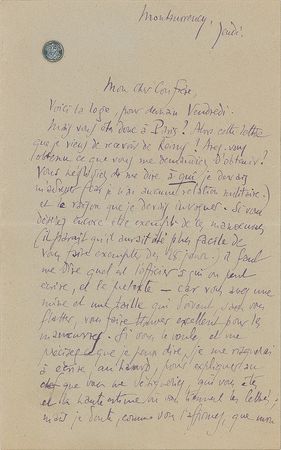 Montmorency,
Jeudi.
Mon cher Confrère,
Voici la loge, pour demain Vendredi.
Mais vous êtes donc à Paris ? Alors cette lettre
que je viens de recevoir de Remy ! Avez-vous
obtenu ce que vous me demandiez d'obtenir ?
Vous négligiez de me dire à qui je devais
m'adresser (car je n'ai aucune relation militaire.)
et la raison que je devais invoquer. Si vous
désirez encore être exempté de ces manœuvres
(il paraît qu'il aurait été plus facile de
vous faire exempter des 28 jours.) il faut
me dire quel est l'officier à qui on peut
écrire, et le prétexte — car vous avez une
mine et une taille qui doivent, sans vous
flatter, vous faire trouver excellent pour les
manœuvres. Si vous le voulez, et me
précisez que je puis dire, je me risquerai
à écrire, au hasard, pour expliquer au
que vous me désignerez, qui vous êtes
et la haute estime où vous tiennent les lettrés ;
mais je doute, comme vous l'affirmez, que mon